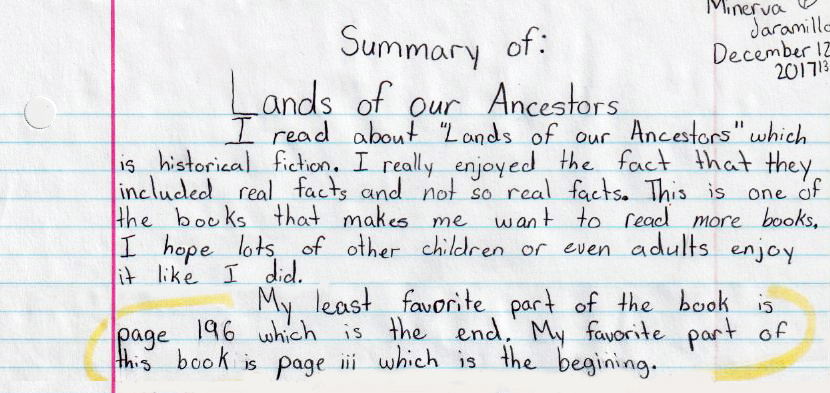 Minerva
Jaramillo
December 12
2017 13
Summary of:
Lands of our Ancestors
I read about "Lands of our Ancestors" which
is historical fiction. I really enjoyed the fact that they
included real facts and not so real facts. This is one of
the books that makes me want to read more books.
I hope lots of other children or even adults enjoy
it like I did.
My least favorite part of the book is
page 196 which is the end. My favorite part of
this book is page iii which is the begining.